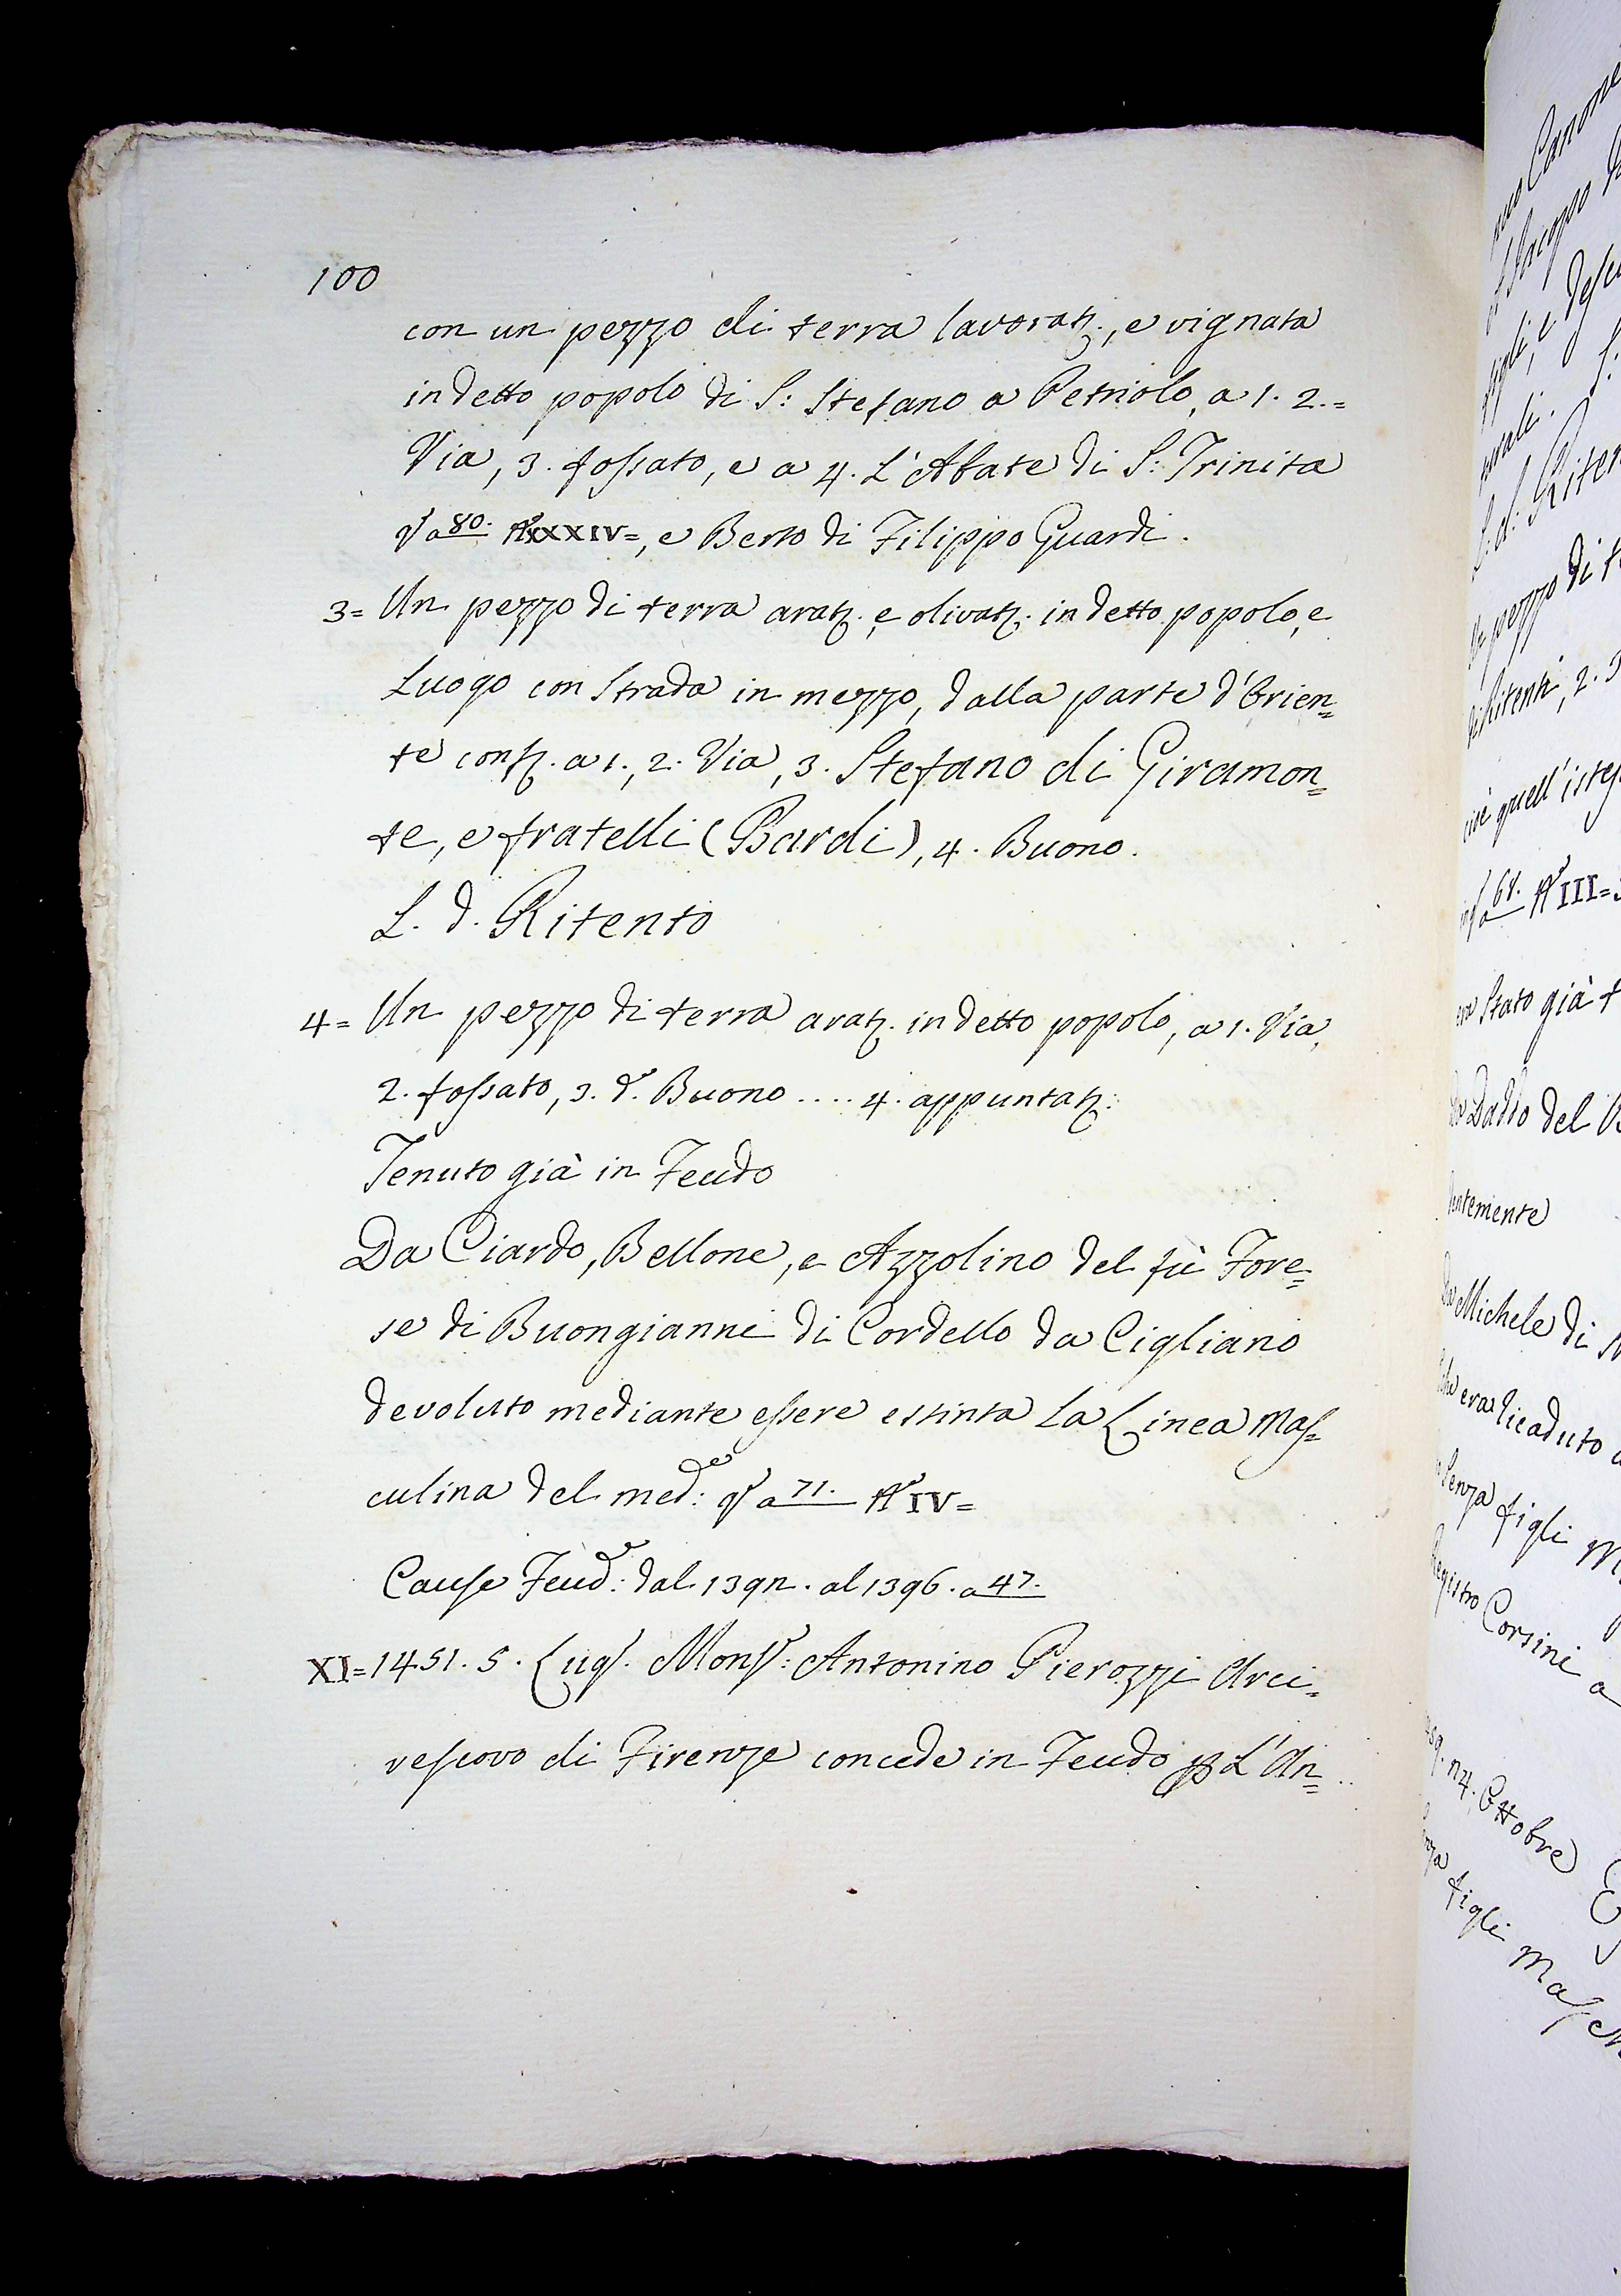 100
con un pezzo di terra lavorat:, e vignata
in detto popolo di S: Stefano a Petriolo, a 1. 2.=
Via, 3. fossato, e a 4. L'Abate di S: Trinita
a 80. XXXIV=, e Berto di Filippo Guardi.
3= Un pezzo di terra arat. e olivat. in detto popolo, e
Luogo con Strada in mezzo, dalla parte d'Orien=
te conf. a 1., 2. Via, 3. Stefano di Giramon=
te, e fratelli (Bardi), 4. Buono.
L. d. Ritento
4= Un pezzo di terra arat. in detto popolo, a 1. Via,
2. fossato, 3. d. Buono .... 4. appuntat:
Tenuto già in Feudo
Da Ciardo, Bellone, e Azzolino del fù Fore=
se di Buongianni di Cordello da Cigliano
devoluto mediante essere estinta la Linea Mas=
culina del med: a 71. IV=
Cause Feud: dal 1392. al 1396. a 47.
XI= 1451. 5. Lug. Mons: Antonino Pierozzi Arci=
vescovo di Firenze concede in Feudo p L'An=
Canone
Jacopo
figli, e
Riten
pezzo di t
di Ritenti, 2.
quell'istes
68. III=
Stato già
Dallo del B
Michele di
era ricaduto
senza figli M
Registro Corsini a
Ottobre
figli Masch